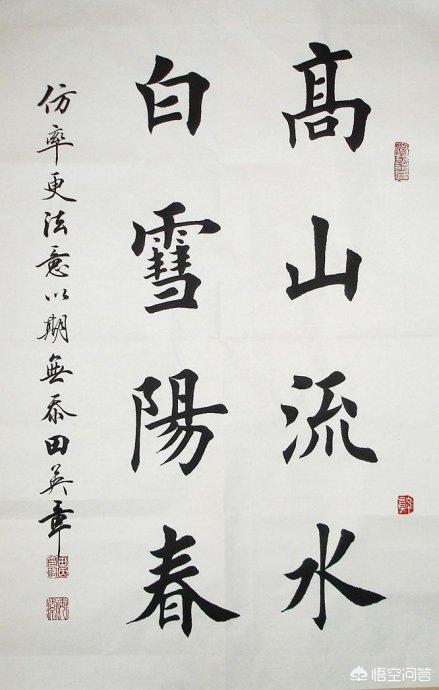 髙山流水
白雪陽春
仿率更法意以期無忝田英章
悟空问答